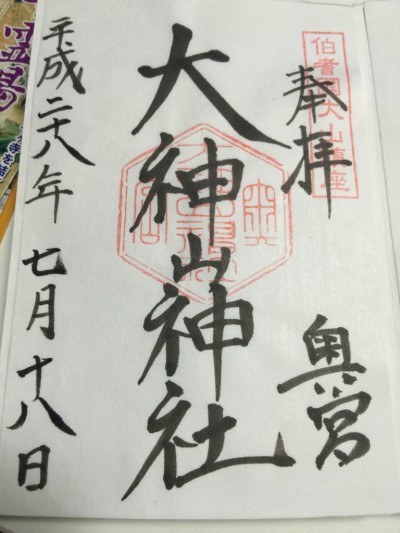 伯耆國大山鎮座
奉拝
奥宮
大神山神社
平成二十八年 七月十八日